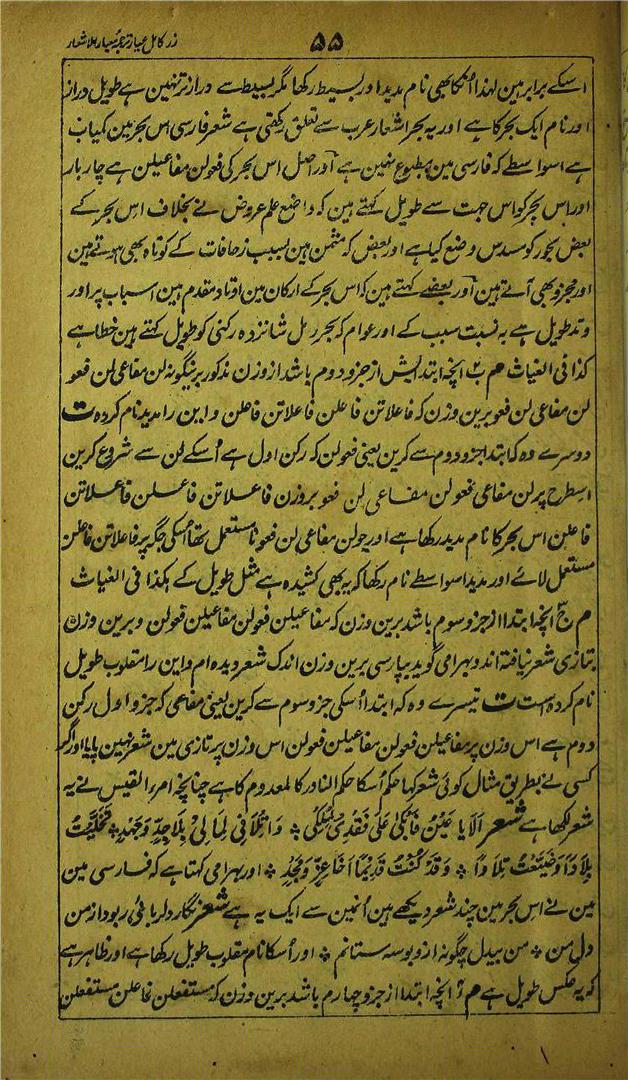 زر کامل عیار ترجمہ معیار الاشعار
۵۵
اسکے برابر ہین لہذا اُنکا بھی نام مدید اور بسیط رکھا مگر بسیط سے دراز تر نہین ہے طویل دراز
اور نام ایک بحر کا ہے اور یہ بحر اشعار عرب سے تعلق رکھتی ہے شعر فارسی اس بحر مین کمیاب
ہے اسواسطے کہ فارسی مین مطبوع نہین ہے اور اصل اس بحر کی فعولن مفاعیلن ہے چار بار
اور اس بحر کو اس جہت سے طویل کہتے ہین کہ واضع علم عروض نے بخلاف اس بحر کے
بعض بحور کو مسدس وضع کیا ہے اور بعض کہ مثمن ہین بسبب زحافات کے کوتاہ بھی ہوتے ہین
اور مجزو بھی آتے ہین اور بعضے کہتے ہین کہ اس بحر کے ارکان مین اوتاد مقدم ہین اسباب پر اور
وتد طویل ہے بہ نسبت سبب کے اور عوام کہ بحر رمل شانزدہ رکنی کو طویل کہتے ہین خطا ہے
کذا فی الغیاث م ب آنچہ ابتدایش از جزو دوم باشد از وزن مذکور برینگونہ لن مفاعی لن فعو
لن مفاعی لن فعو برین وزن کہ فاعلاتن فاعلن فاعلاتن فاعلن و این را مدید نام کردہ ت
دوسرے وہ کہ ابتدا جزو دوم سے کرین یعنی فعولن کہ رکن اول ہے اُسکے لن سے شروع کرین
اسطرح پر لن مفاعی فعولن مفاعی لن فعو بروزن فاعلاتن فاعلن فاعلاتن
فاعلن اس بحر کا نام مدید رکھا ہے اور چولن مفاعی لن فعو نا مستعمل تھا اُسکی جگہ پر فاعلاتن فاعلن
مستعمل لائے اور مدید اسواسطے نام رکھا کہ یہ بھی کشیدہ ہے مثل طویل کے ہکذا فی الغیاث
م ج آنچہ ابتدا از جزو سوم باشد برین وزن کہ مفاعیلن فعولن مفاعیلن فعولن و برین وزن
بتازی شعر نیافتہ اند و بہرامی گوید بپارسی برین وزن اندک شعر دیدہ ام و این را مقلوب طویل
نام کردہ است ت تیسرے وہ کہ ابتدا اُسکی جزو سوم سے کرین یعنی مفاعی کہ جزو اول رکن
دوم ہے اس وزن پر مفاعیلن فعولن مفاعیلن فعولن اس وزن پر تازی مین شعر نہین پایا اور اگر
کسی نے بطریق مثال کوئی شعر کہا حکم اُسکا حکم النادر کالمعدوم کا ہے چنانچہ امرء القیس نے یہ
شعر لکھا ہے شعر اَلَا یا عَیْن فَابْکِیْ عَلیٰ فَقْدِیْ لِمُلْکِیْ * وَاِتْلَافِیْ لِمَا لِیْ بِلَا جِدٍّ وَجَہْدٍ * تَخَطَّیْتُ
بِلَاداً وَضَیَّعْتُ تِلَاداً * وَقَدْ کُنْتُ قَدِیْمًا اَخَا عِزٍّ وَمَجْدٍ * اور بہرامی کہتا ہے کہ فارسی مین
مین نے اس بحر مین چند شعر دیکھے ہین اُنہین سے ایک یہ ہے شعر نگار دلربائی ربود از من
دل من * من بیدل چگونہ ازو بوسہ ستانم * اور اُسکا نام مقلوب طویل رکھا ہے اور ظاہر ہے
کہ یہ عکس طویل ہے م آنچہ ابتدا از جزو چہارم باشد برین وزن کہ مستفعلن فاعلن مستفعلن